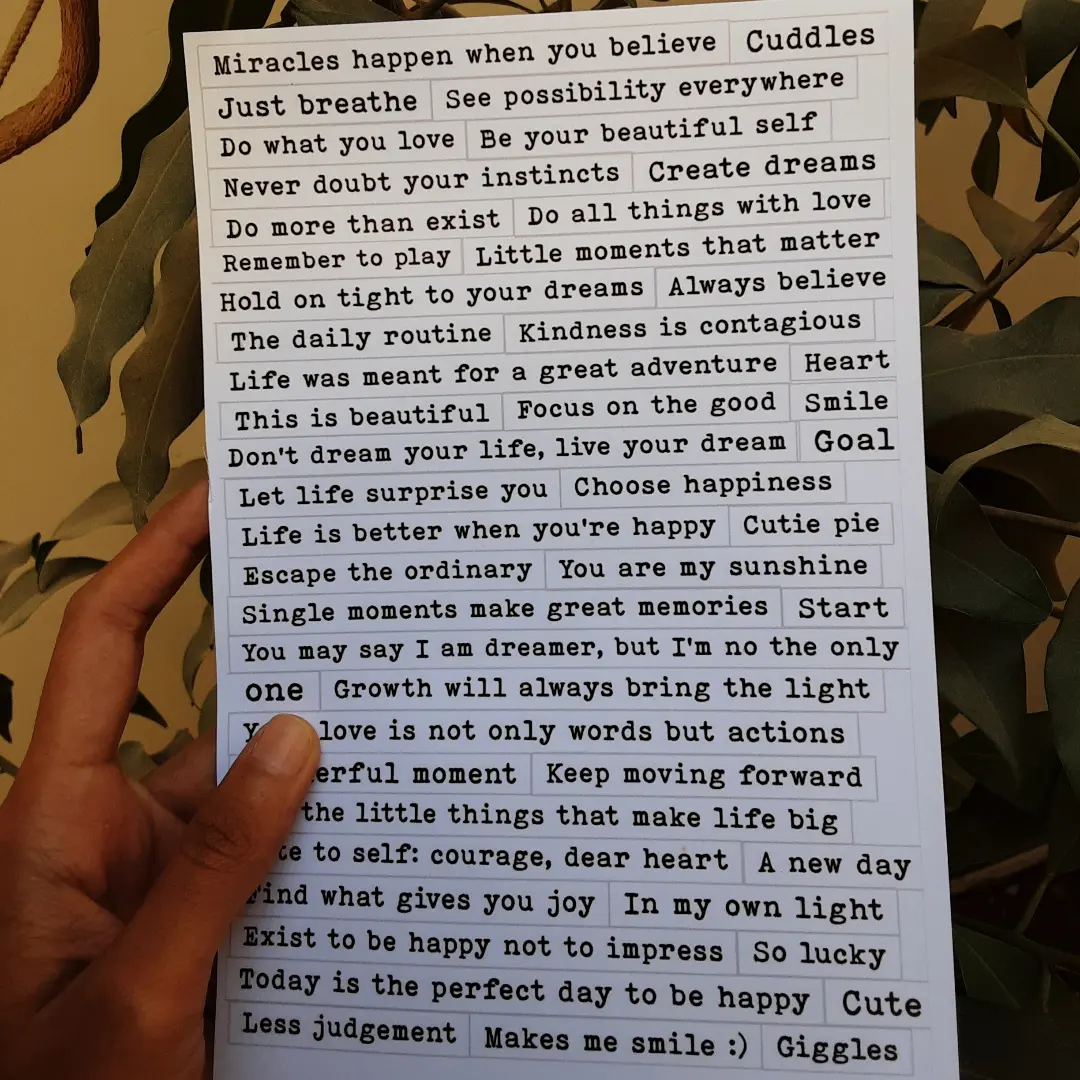 Miracles happen when you believe Cuddles
Just breathe See possibility everywhere
Do what you love Be your beautiful self
Never doubt your instincts Create dreams
Do more than exist Do all things with love
Remember to play Little moments that matter
Hold on tight to your dreams Always believe
The daily routine Kindness is contagious
Life was meant for a great adventure Heart
This is beautiful Focus on the good Smile
Don't dream your life, live your dream Goal
Let life surprise you Choose happiness
Life is better when you're happy Cutie pie
Escape the ordinary You are my sunshine
Single moments make great memories Start
You may say I am dreamer, but I'm no the only
one Growth will always bring the light
love is not only words but actions
moment Keep moving forward
the little things that make life big
to self: courage, dear heart A new day
Find what gives you joy In my own light
Exist to be happy not to impress So lucky
Today is the perfect day to be happy Cute
Less judgement Makes me smile :) Giggles